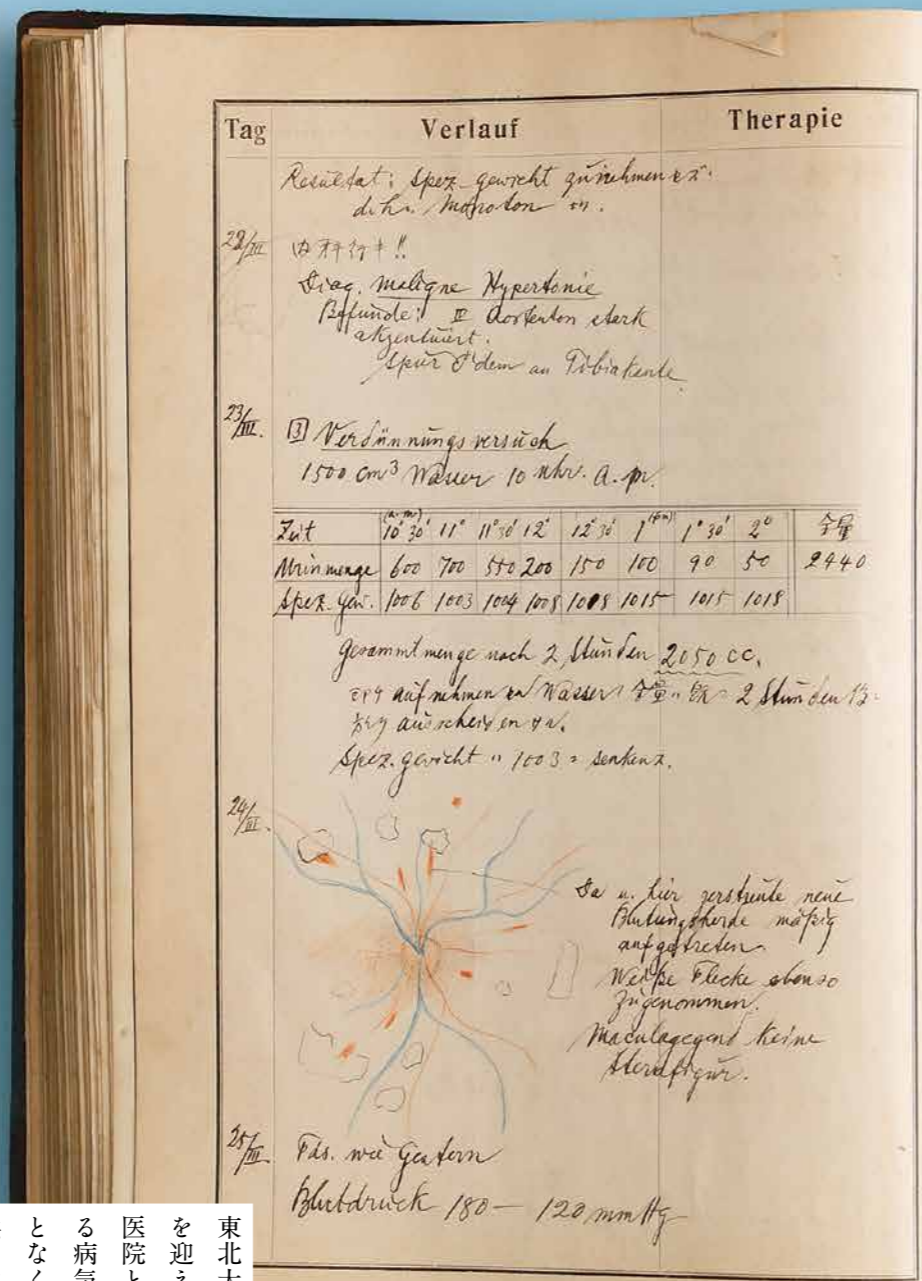 Tag Verlauf Therapie
Resultat: Spez. gewicht zunehmen セズ.
d.h. Monoton
22/III 内科行キ!!
Diag. maligne Hypertonie
Befunde: II Aortenton stark
akzentuiert.
Spur Ödem an Tibiakante
23/III. 3 Verdünnungsversuch
1500 cm³ Wasser 10 uhr. a.m.
Zeit (a.m) 10° 30' 11° 11° 30' 12° 12° 30' 1° (pm) 1° 30' 2° 全量
Urinmenge 600 700 550 200 150 100 90 50 2440
Spez. Gew. 1006 1003 1004 1008 1008 1015 1015 1018
Gesammtmenge nach 2 Stunden 2050 cc.
aufnehmen Wasser 全量 2 Stunden
ausscheiden
Spez. gewicht ハ 1003 ニ senken ス.
24/III.
Da u. hier zerstreute neue
Blutungsherde mäßig
aufgetreten.
Weiße Flecke ebenso
zugenommen.
Maculagegend keine
Sternfigur.
25/III. Fds. wie Gestern
Blutdruck 180 — 120 mmHg
東北大
を迎え
医院と
る病気
となく